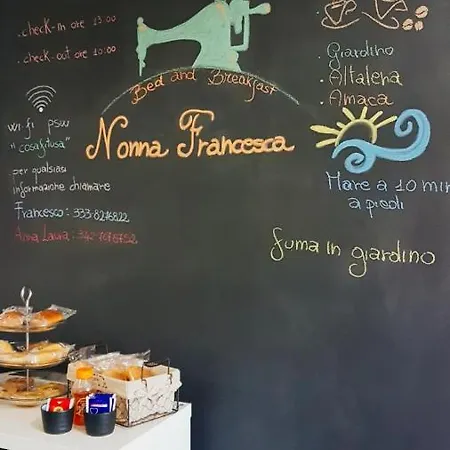 .check-in ore 13:00
.check-out ore 10:00
Bed and Breakfast
Nonna Francesca
wi-fi psw
per qualsiasi
informazione chiamare
Francesco: 333-8276822
Anna Laura:
. Giardino
. Altalena
. Amaca
Mare a 10 min
a piedi
fuma in giardino